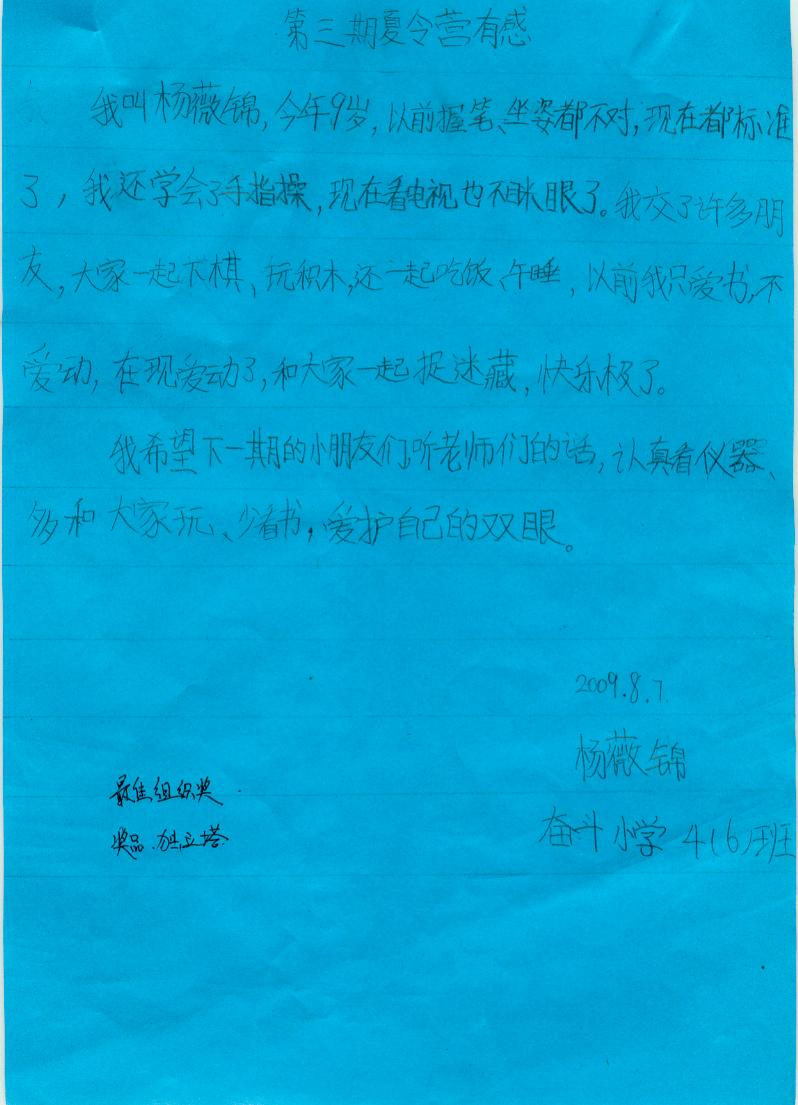 第三期夏令营有感
我叫杨薇锦，今年9岁，以前握笔、坐姿都不对，现在都标准
了，我还学会了手指操，现在看电视也不眯眼了。我交了许多朋
友，大家一起下棋、玩积木，还一起吃饭、午睡，以前我只爱书，不
爱动，在现爱动了，和大家一起捉迷藏，快乐极了。
我希望下一期的小朋友们听老师们的话，认真看仪器、
多和大家玩、少看书，爱护自己的双眼。
2009.8.7.
杨薇锦
最佳组织奖
奋斗小学4(6)班
奖品